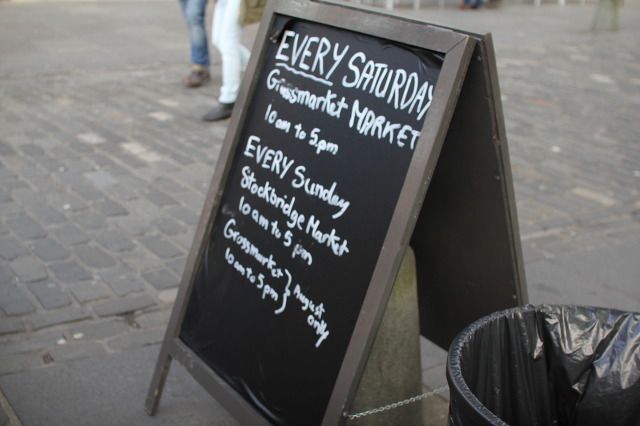 EVERY SATURDAY
Grassmarket MARKET
10 am to 5.pm
EVERY Sunday
Stockbridge Market
10 am to 5 pm
Grassmarket
10 am to 5pm } August only